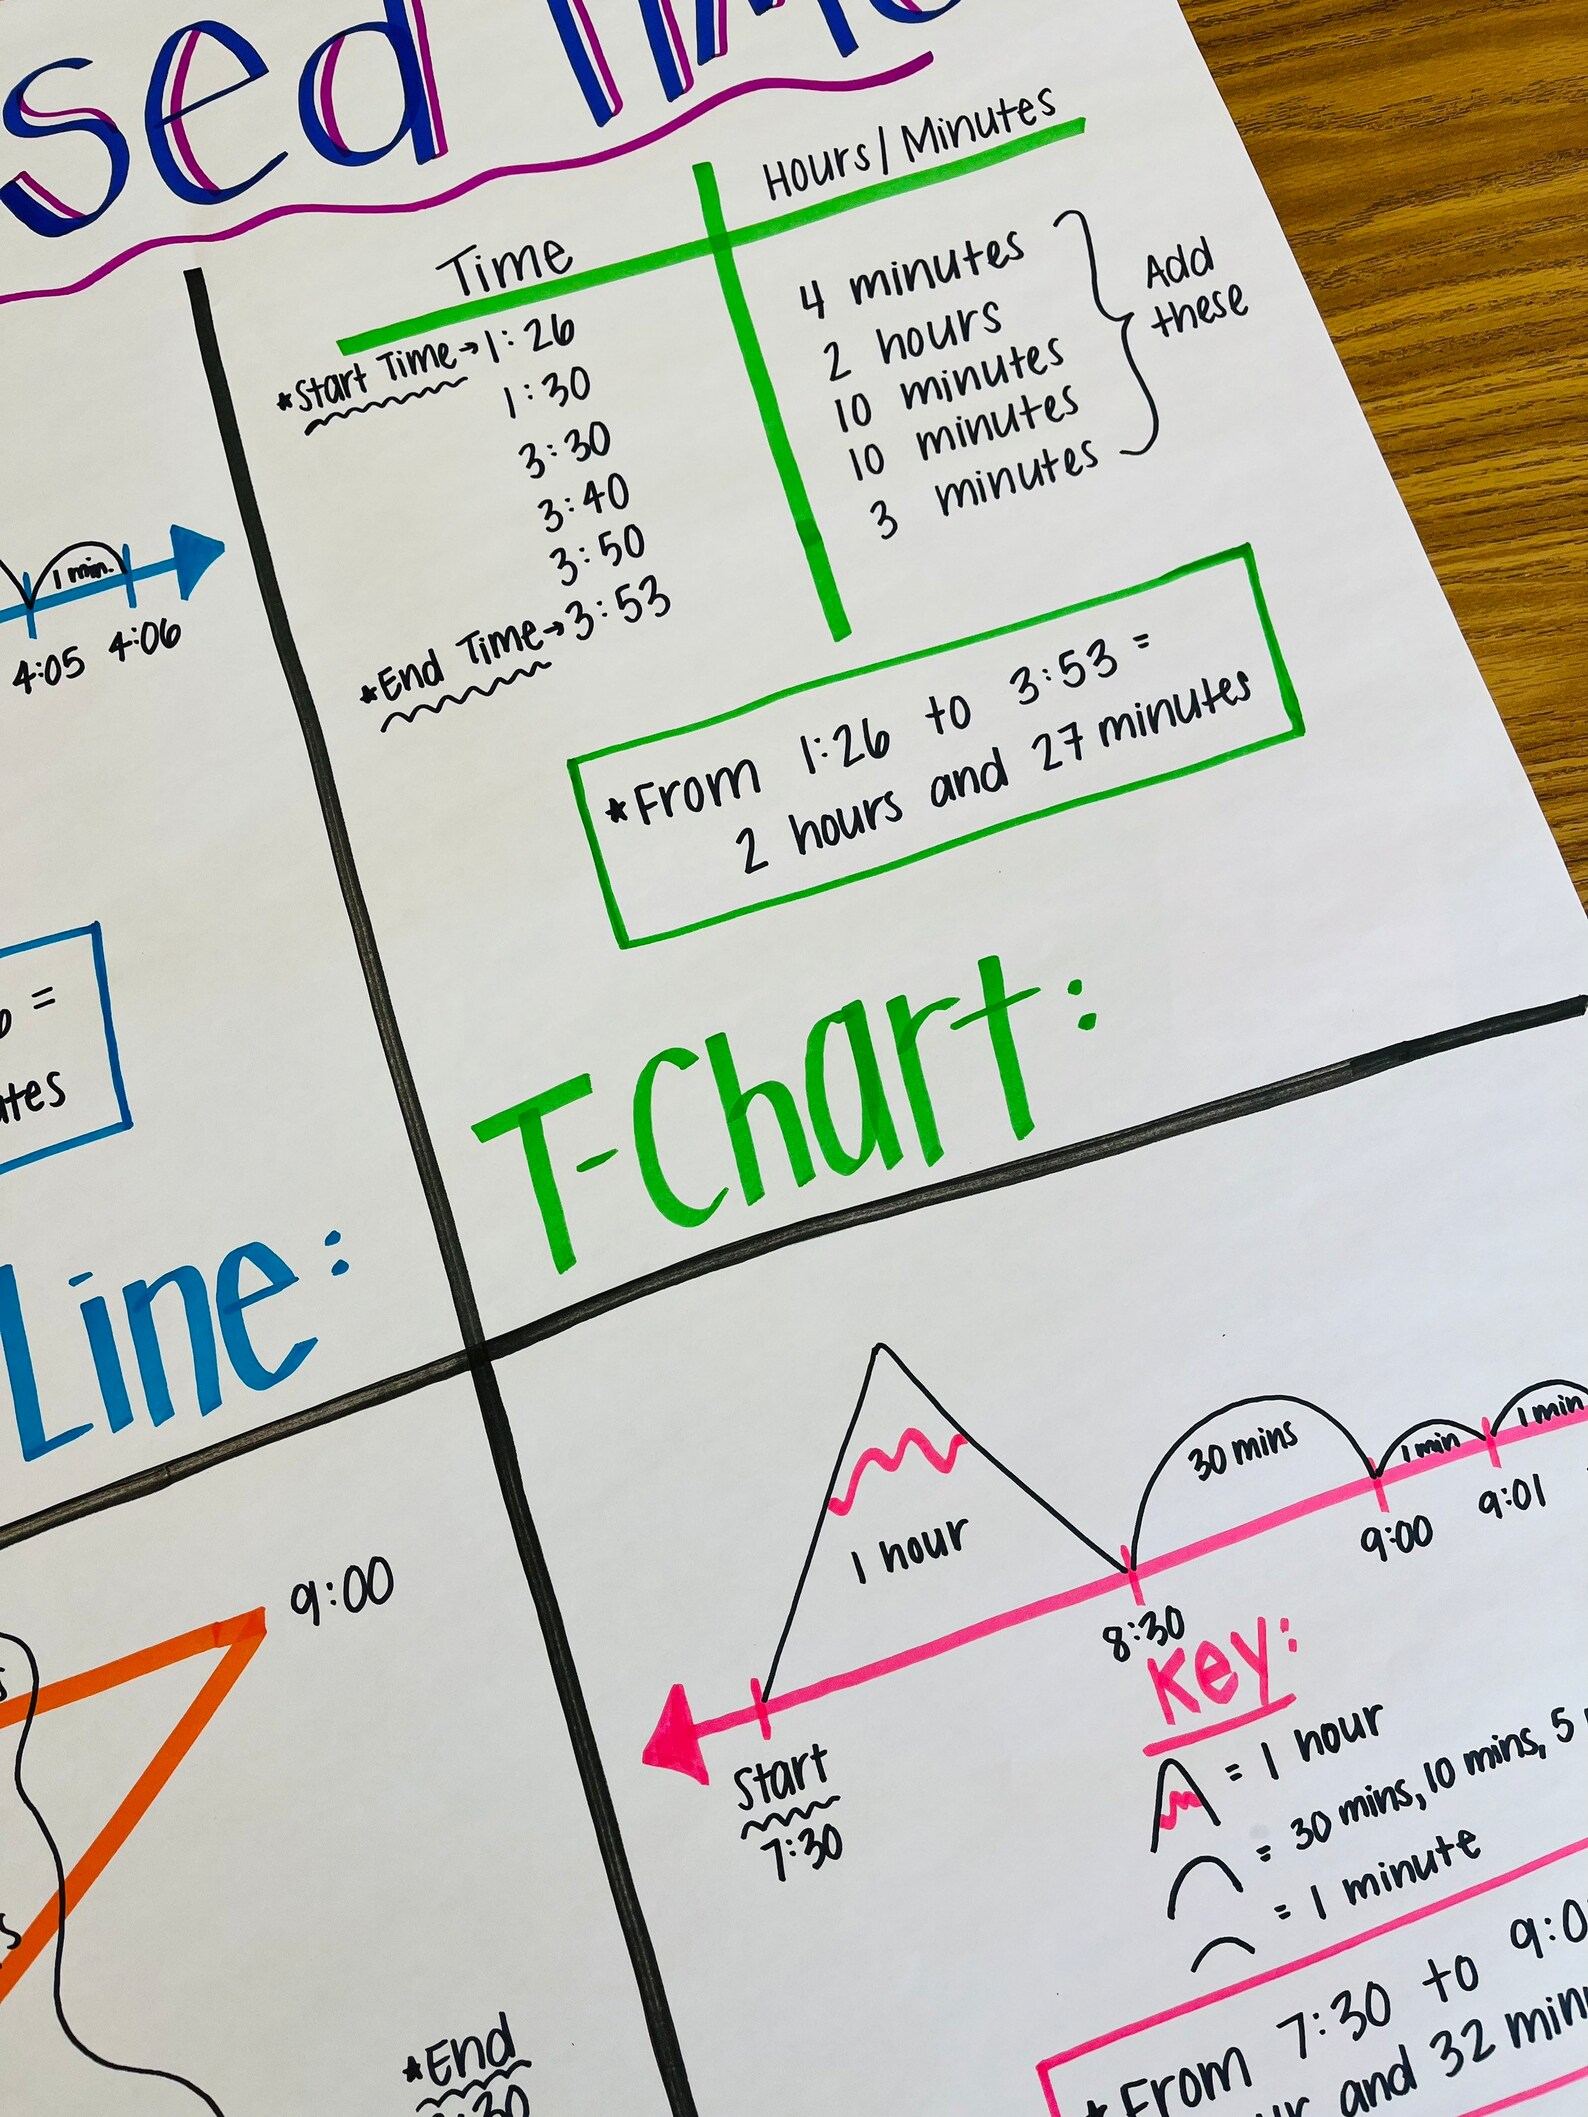 sed Time
Time
Hours/Minutes
*Start Time→1:26
1:30
3:30
3:40
3:50
*End Time→3:53
4 minutes
2 hours
10 minutes
10 minutes
3 minutes
Add
these
*From 1:26 to 3:53 =
2 hours and 27 minutes
T-Chart:
1 min.
4:05 4:06
=
Line:
1 hour
30 mins
1 min
1 min
Start
7:30
8:30
9:00
9:01
Key:
= 1 hour
= 30 mins, 10 mins, 5
= 1 minute
*From 7:30 to 9:0
and 32 min
9:00
*End